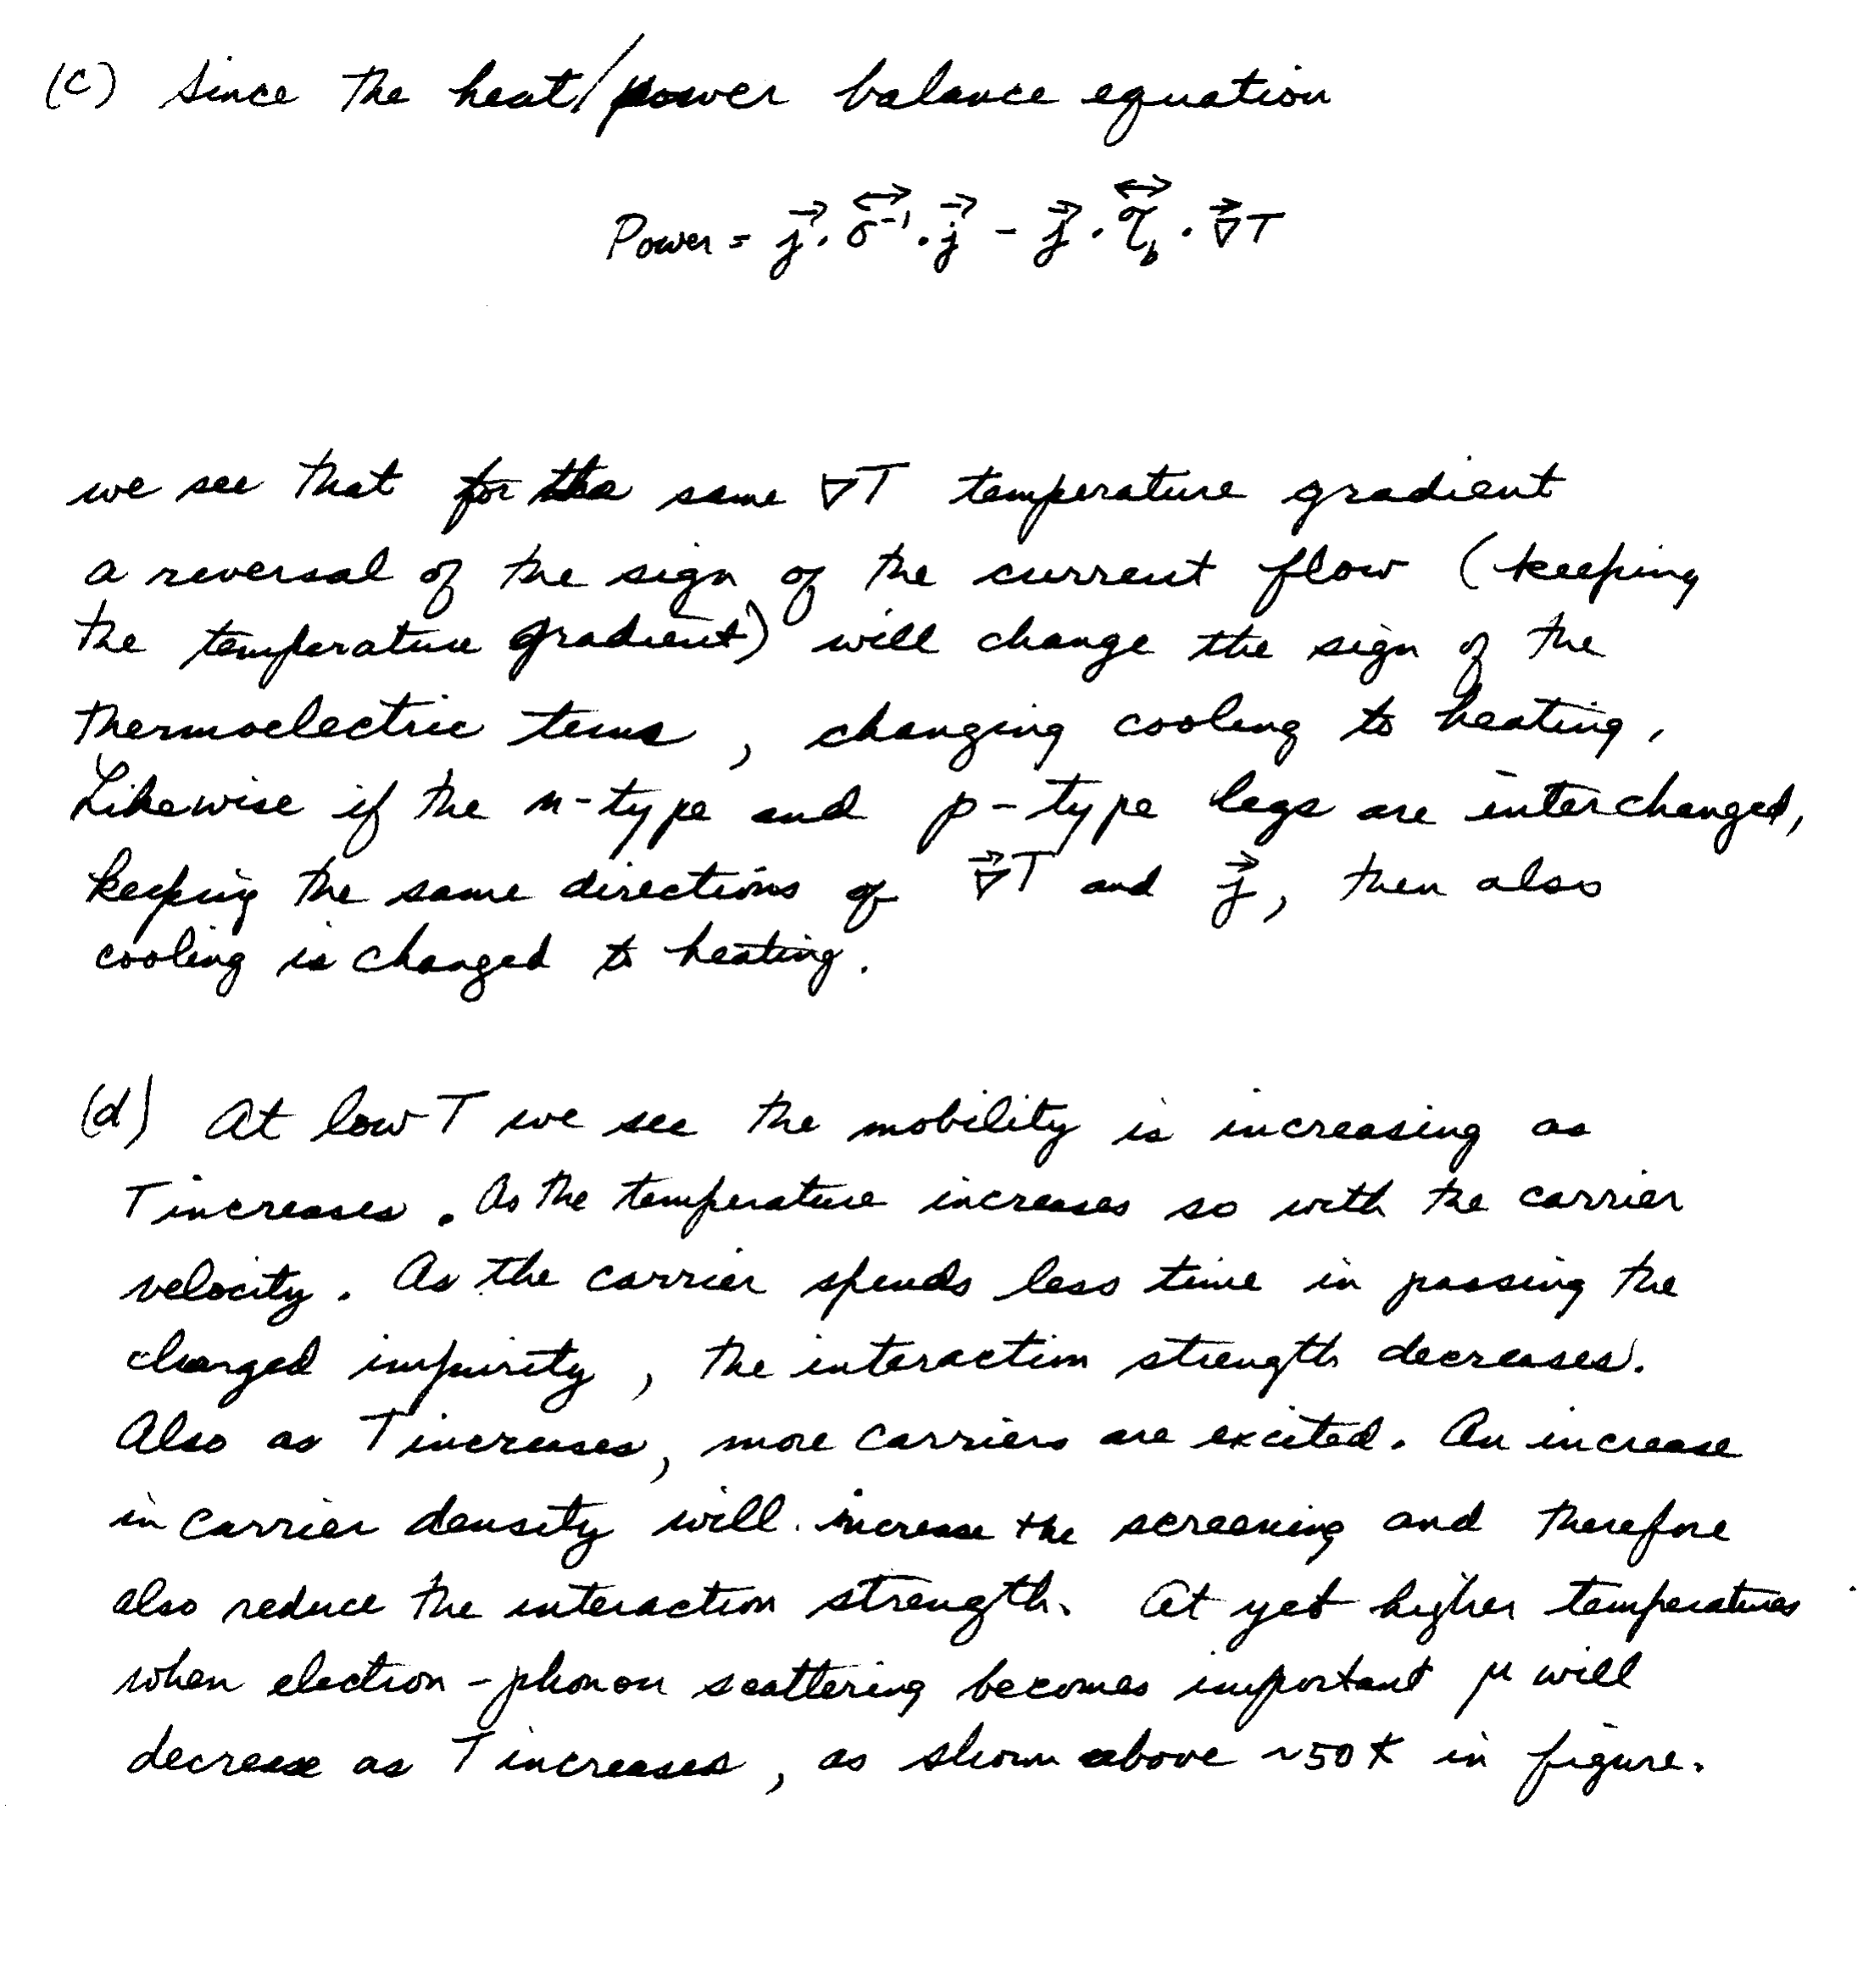 (c) Since the heat/power balance equation
Power = j⃗ · σ⃡⁻¹ · j⃗ − j⃗ · 𝒯⃡_b · ∇⃗T
we see that for the same ∇T temperature gradient
a reversal of the sign of the current flow (keeping
the temperature gradient) will change the sign of the
thermoelectric terms, changing cooling to heating.
Likewise if the n-type and p-type legs are interchanged,
keeping the same directions of ∇⃗T and j⃗, then also
cooling is changed to heating.
(d) At low T we see the mobility is increasing as
T increases. As the temperature increases so with the carrier
velocity. As the carrier spends less time in passing the
charged impurity, the interaction strength decreases.
Also as T increases, more carriers are excited. An increase
in carrier density will increase the screening and therefore
also reduce the interaction strength. At yet higher temperatures
when electron-phonon scattering becomes important μ will
decrease as T increases, as shown above ~50 K in figure.